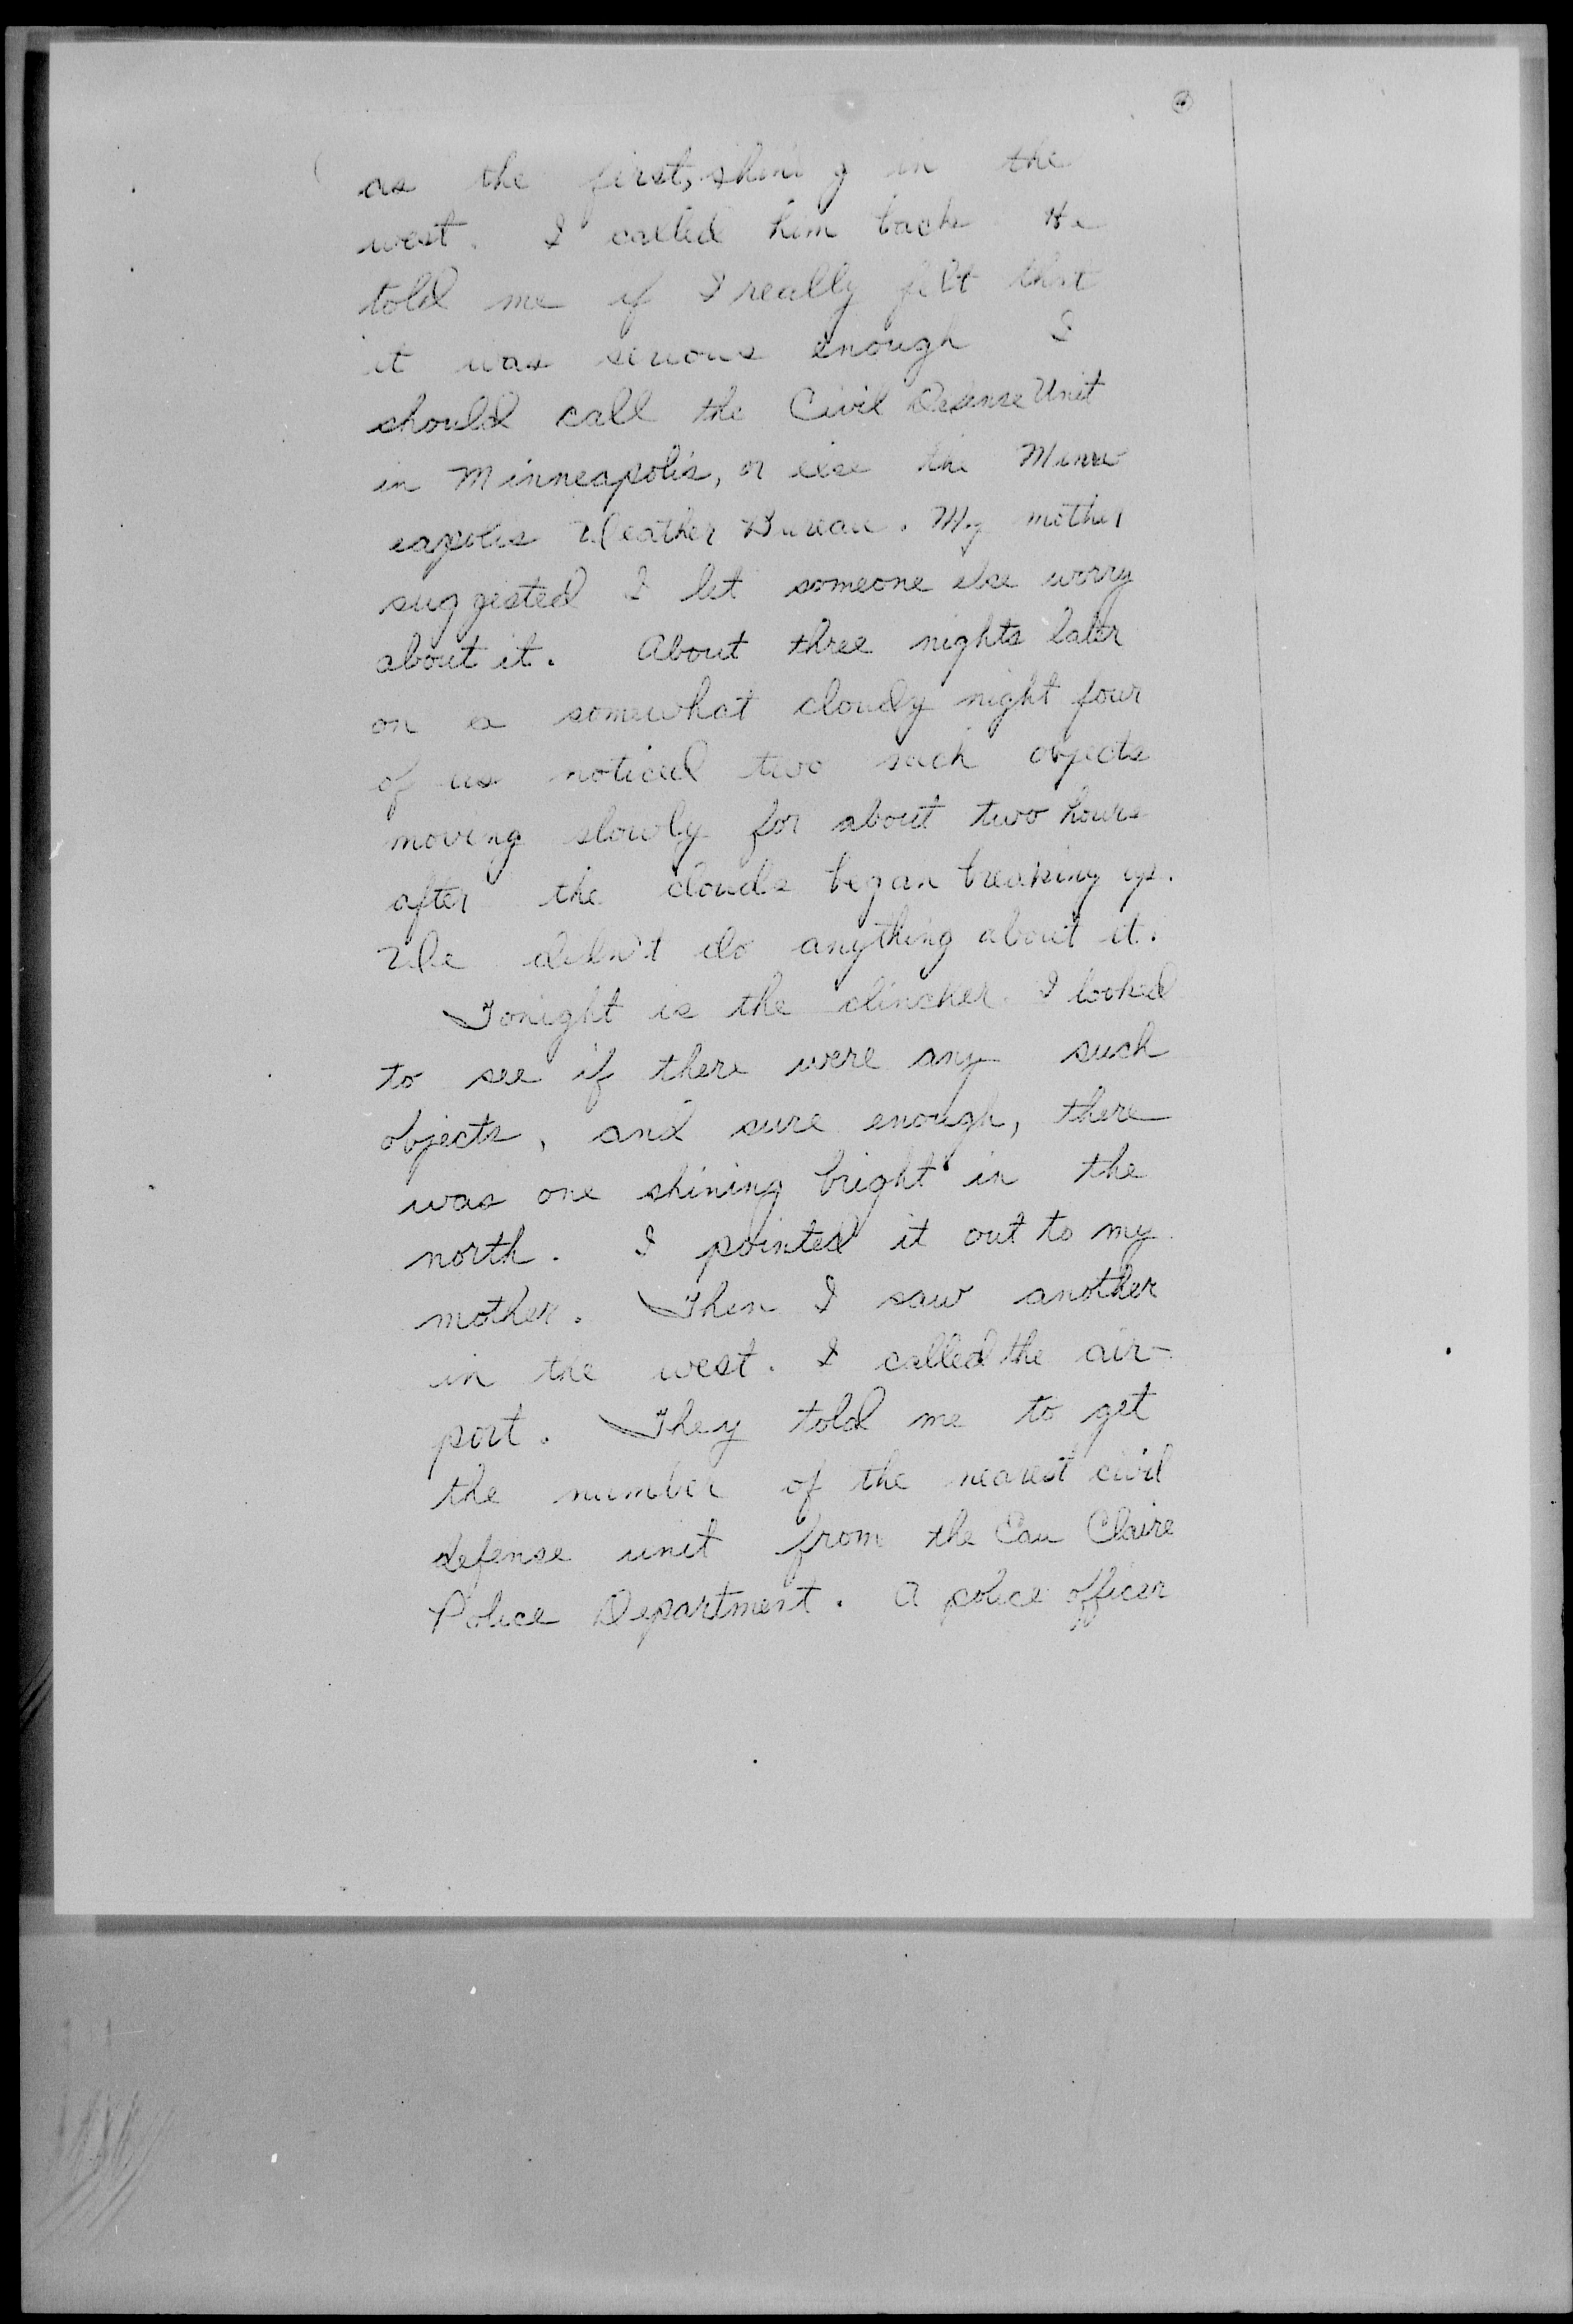 as the first, shining in the
west. I called him back He
told me if I really felt that
it was serious enough I
should call the Civil Defense Unit
in Minneapolis, or else the Minne
eapolis Weather Bureau. My mother
suggested I let someone else worry
about it. About three nights later
on a somewhat cloudy night four
of us noticed two such objects
moving slowly for about two hours
after the clouds began breaking up.
We didn't do anything about it.
Tonight is the clincher. I looked
to see if there were any such
objects, and sure enough, there
was one shining bright in the
north. I pointed it out to my
mother. Then I saw another
in the west. I called the air-
port. They told me to get
the number of the nearest civil
defense unit from the Eau Claire
Police Department. A police officer